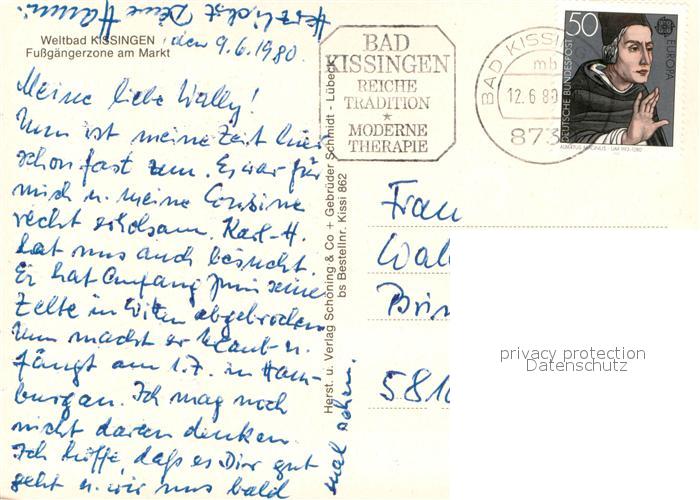 Weltbad KISSINGEN
Fußgängerzone am Markt
den 9.6.1980.
Meine liebe Wally!
Nun ist meine Zeit hier
schon fast rum. Es war für
mich u. meine Cousine
recht erholsam. Karl-H.
hat uns auch besucht.
Er hat Anfang Juni seine
Zelte in Witten abgebrochen
Nun macht er Urlaub u.
fängt am 1.7. in Ham-
burg an. Ich mag noch
nicht daran denken.
Ich hoffe, daß es Dir gut
geht u. wir uns bald
mal sehen.
Herzlichst Deine Hanni
Herst. u. Verlag Schöning & Co + Gebrüder Schmidt - Lübeck
bs Bestellnr. Kissi 862
BAD
KISSINGEN
REICHE
TRADITION
*
MODERNE
THERAPIE
BAD KISSING
mb
12.6.80
873
50
DEUTSCHE BUNDESPOST
EUROPA
ALBERTUS MAGNUS · UM 1193-1280
Frau
Wal
Bri
581
privacy protection
Datenschutz